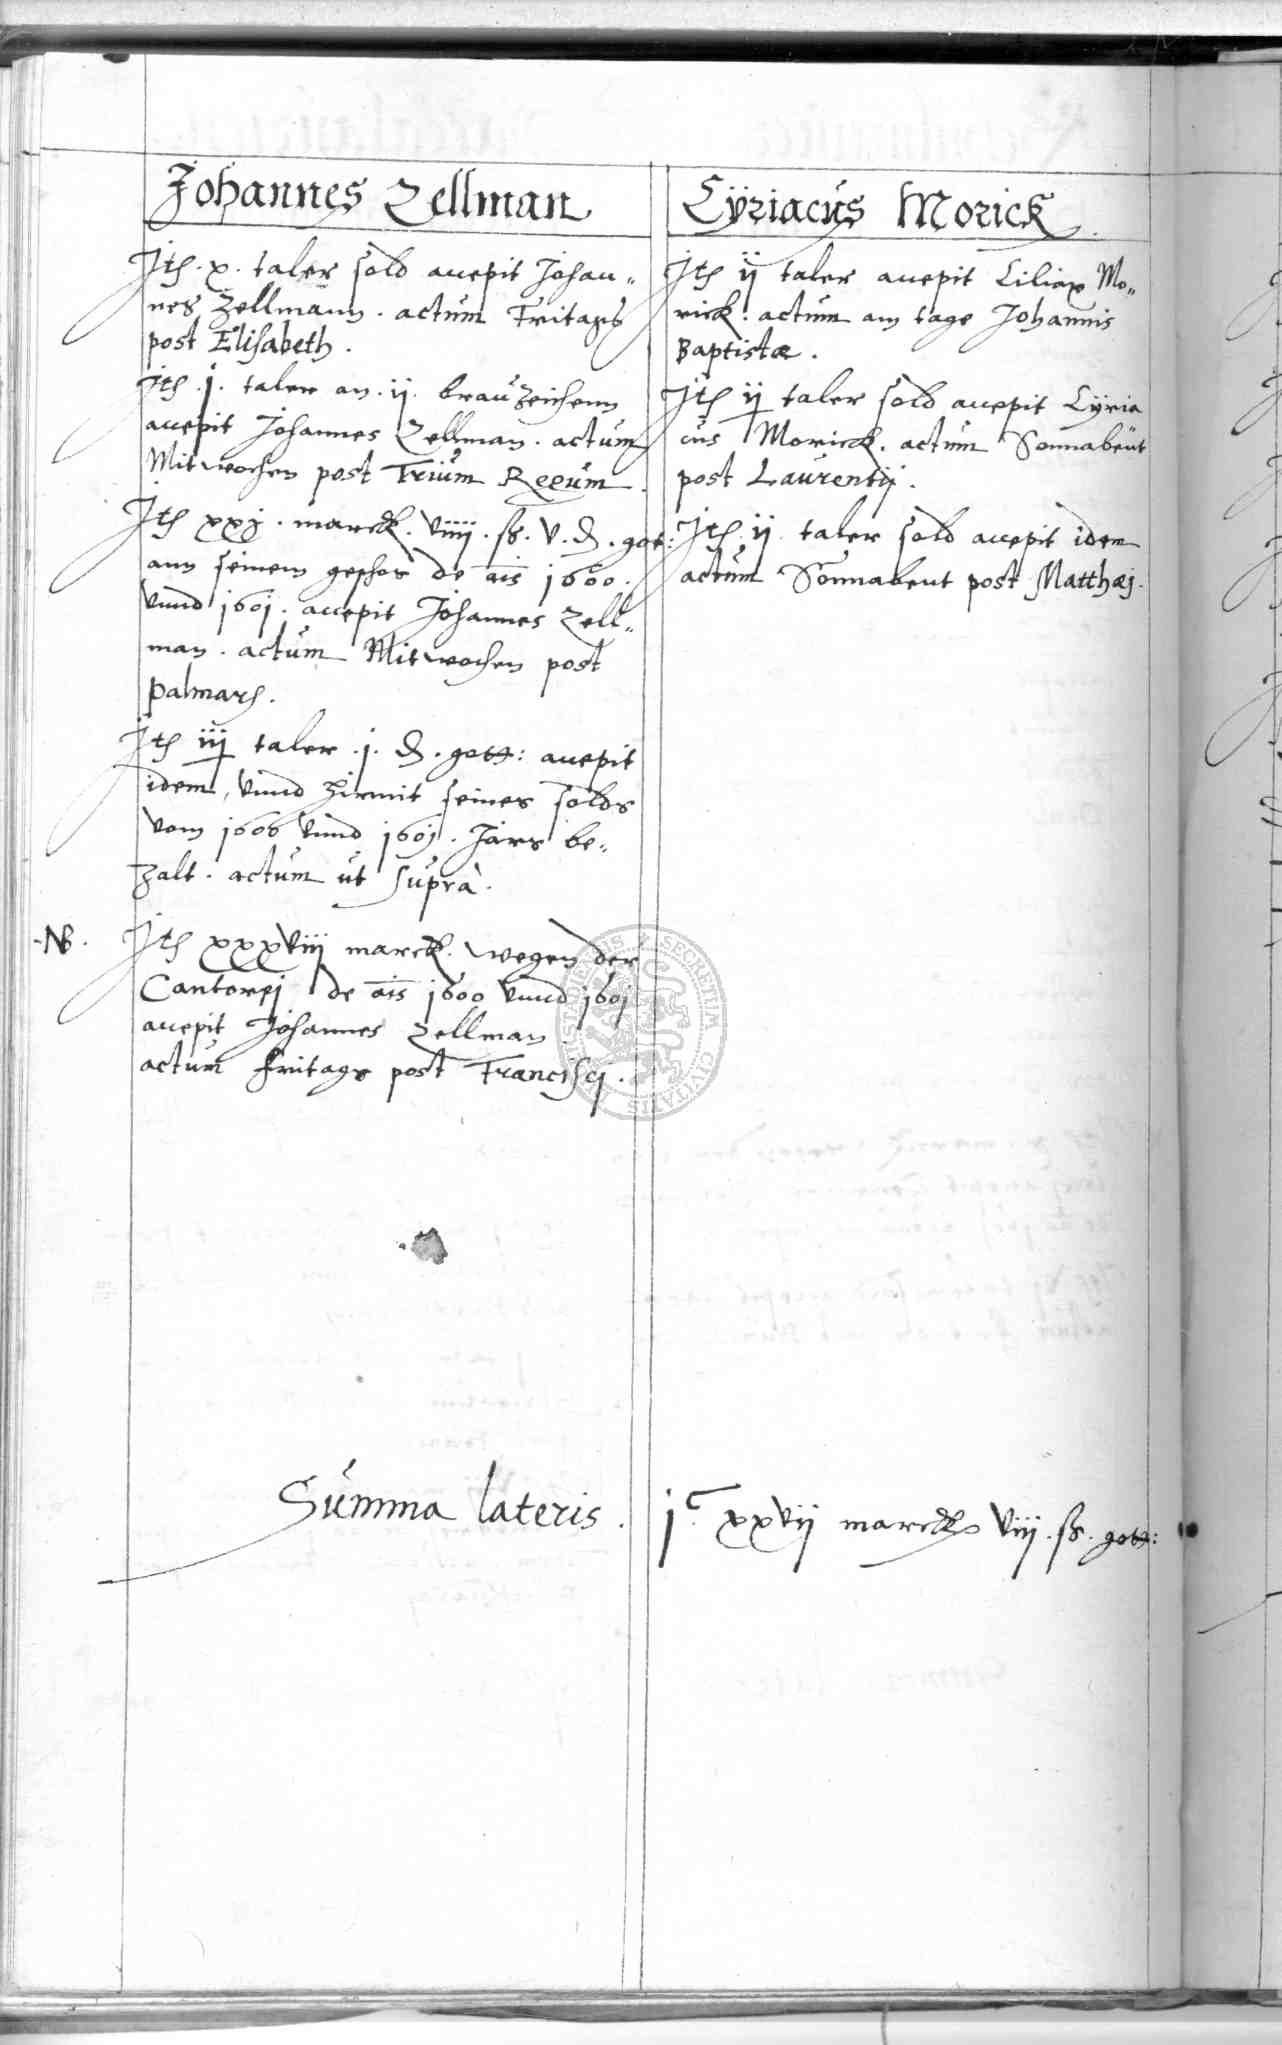 Johannes Zellman
Jtē . x . taler sold accepit Johan„
nes Zellmann . actum Fritags
post Elisabeth .
Jtē . j . taler an . ij . brauzeichenn
accepit Johannes Zellman . actum
Mitwochen post Trium Regum .
Jtē xxj . marck . viiij . ß . v . ₰ . gott:
ann seinem geschos de aīs 1600 .
vnnd 1601 . accepit Johannes Zell„
man . actum Mitwochen post
Palmarū .
Jtē iij taler . j . ₰ . gott: accepit
idem, vnnd hirmit seines solds
vom 1600 vnnd 1601 . Jars be„
zalt . actum ut supra .
NB .
Jtē xxxviij marck . wegen der
Cantorej de aīs 1600 vnnd 1601
accepit Johannes Zellman
actum fritags post Francisci .
Cÿriacus Morick .
Jtē ij taler accepit Ciliax Mo„
rick . actum am tage Johannis
Baptistæ .
Jtē ij taler sold accepit Cÿria
cus Morick . actum Sonnabent
post Laurentij .
Jtē . ij . taler sold accepit idem
actum Sonnabent post Matthæj .
Summa lateris . jᶜ xxvij marck viij . ß . gott:
SECRETUM CIVITATIS